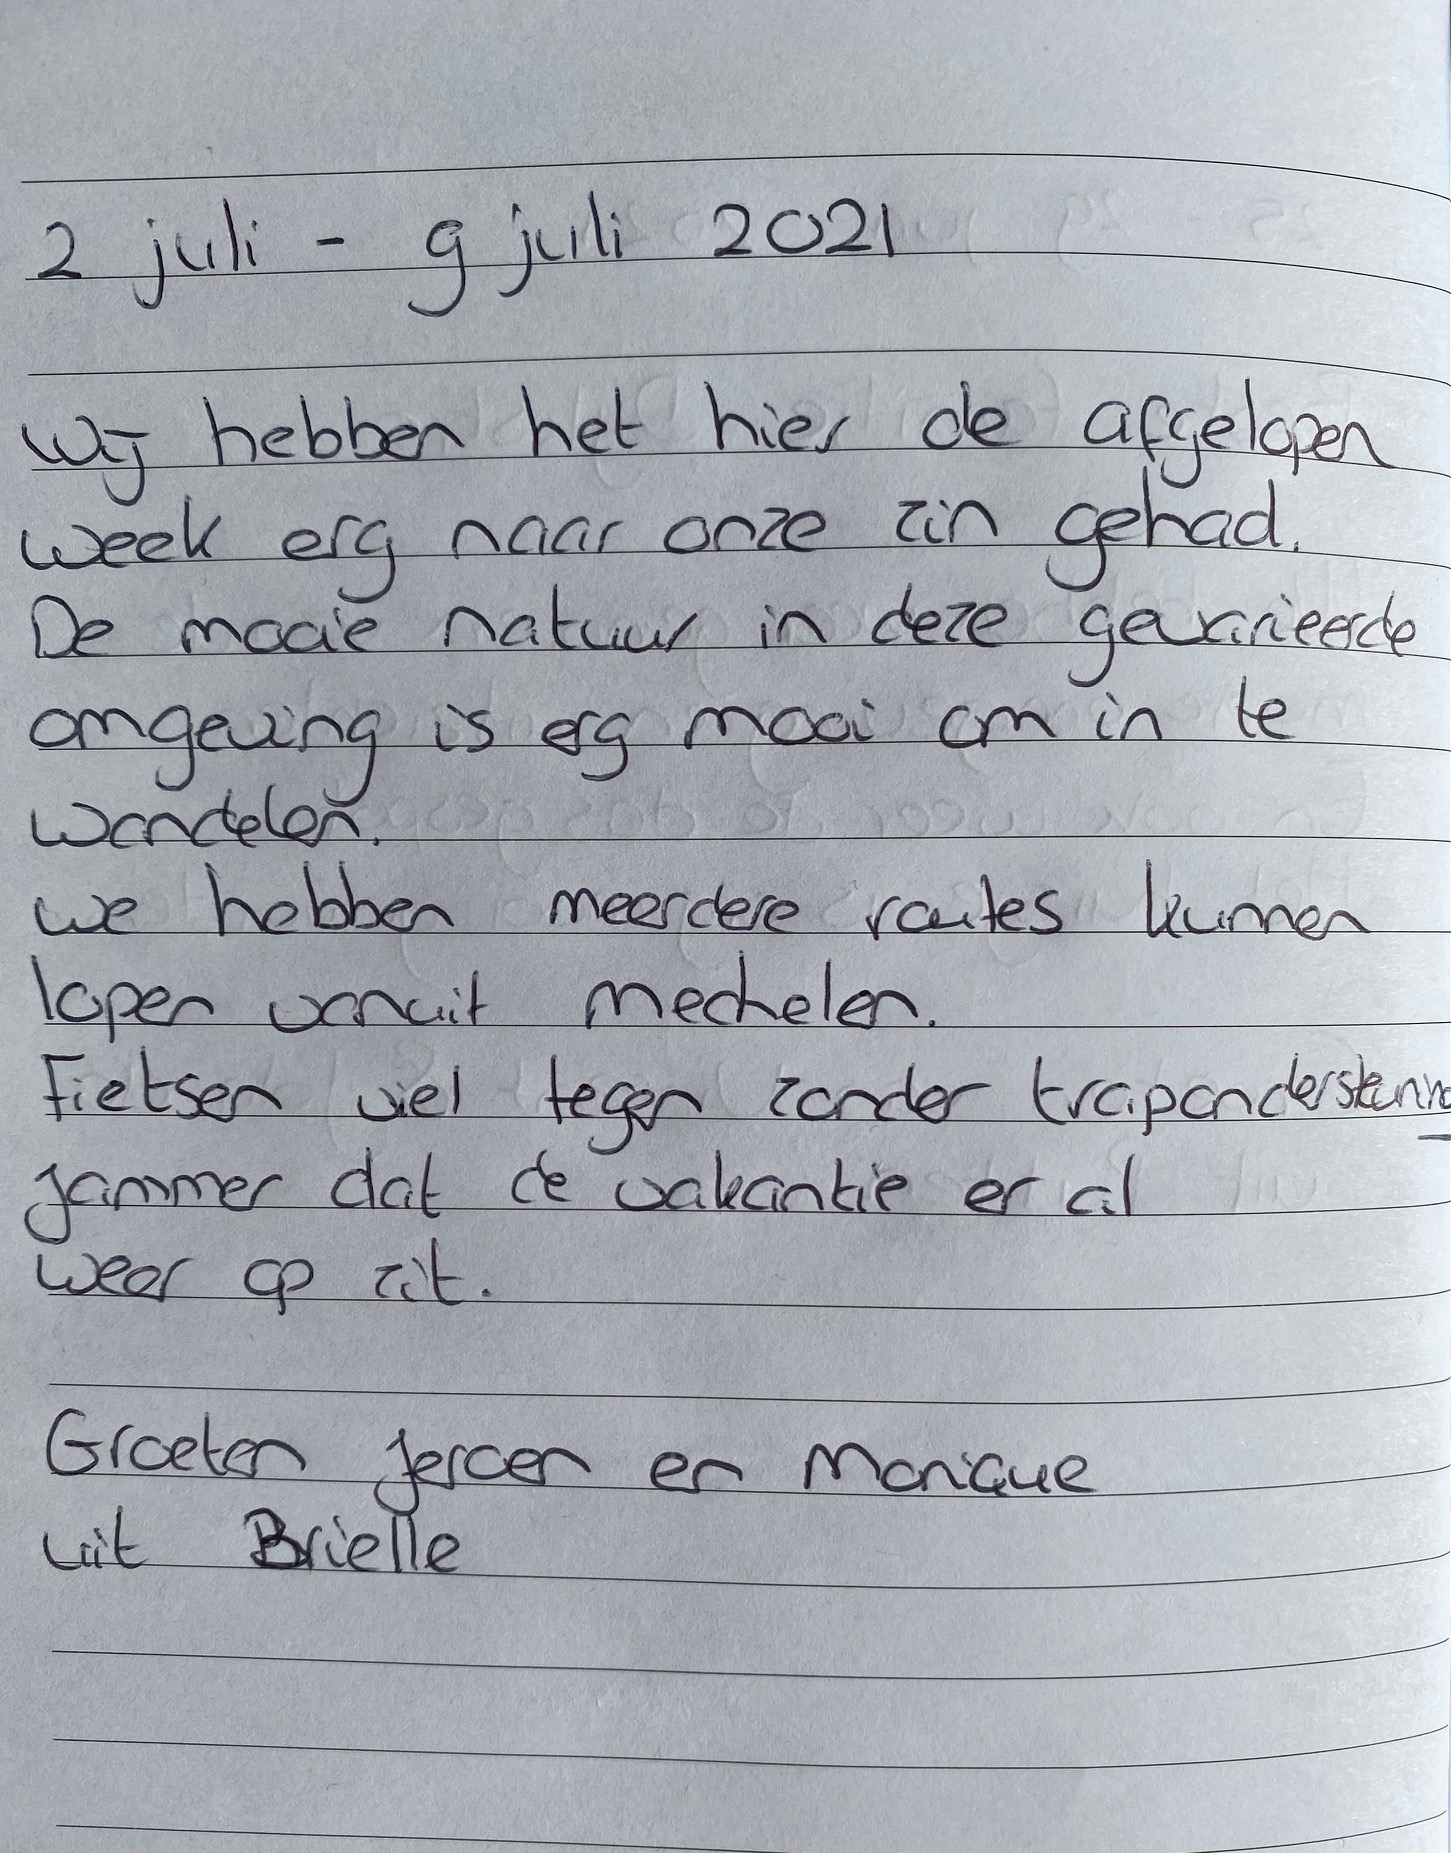 2 juli - 9 juli 2021
Wij hebben het hier de afgelopen
week erg naar onze zin gehad.
De mooie natuur in deze gevarieerde
omgeving is erg mooi om in te
wandelen.
we hebben meerdere routes kunnen
lopen vanuit mechelen.
Fietsen viel tegen zonder
jammer dat de vakantie er al
weer op zit.
Groeten Jeroen en Monique
uit Brielle